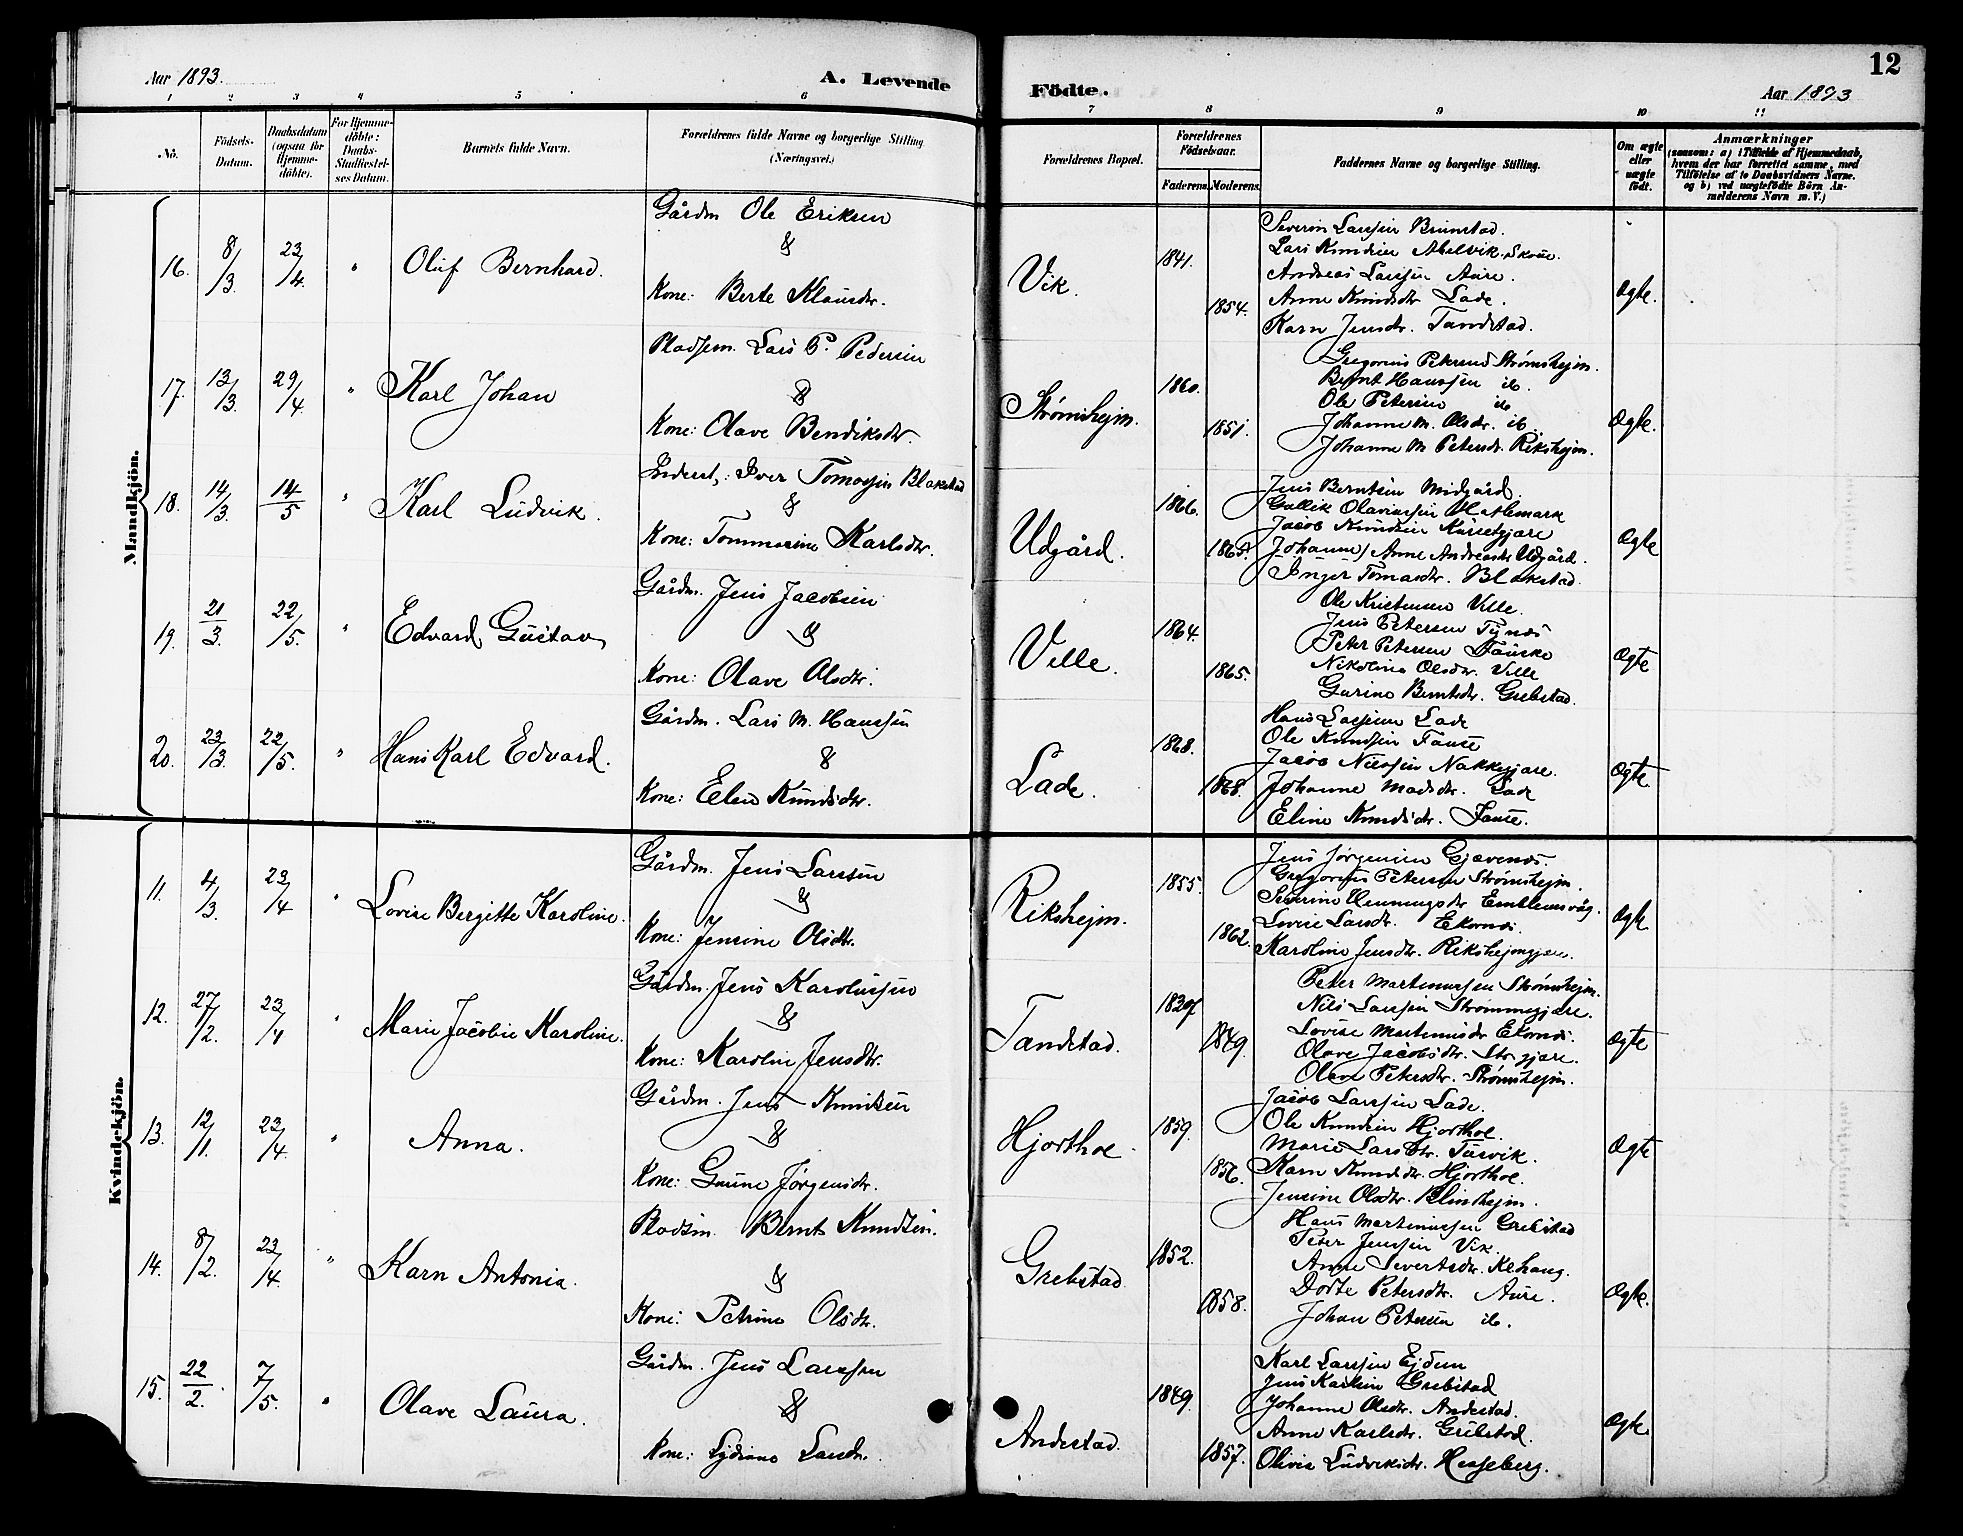 Aar 1893.
A. Levende
Födte.
12
Aar 1893
1 2 3 4 5 6 7 8 9 10 11
No.
Födsels-Datum.
Daabsdatum (ogsaa for Hjemme-döbte).
For Hjemme-döbte: Daabs-Stadfæstelses Datum.
Barnets fulde Navn.
Forældrenes fulde Navne og borgerlige Stilling (Næringsvei.)
Forældrenes Bopæl.
Forældrenes Födselsaar.
Faderens. Moderens.
Faddernes Navne og borgerlige Stilling.
Om ægte eller uægte født.
Anmærkninger
(saasom: a) i Tilfælde af Hjemmedaab, hvem der har forrettet samme, med Tilföielse af to Daabsvidners Navne. og b) ved uægtefödte Börn Anmelderens Navn m.V.)
Mandkjön.
16. 8/3 23/4 " Oluf Bernhard.
Gårdm Ole Eriksen
&
Kone: Berte Klausdtr.
Vik. 1841. 1854.
Severin Larssen Brunstad.
Lars Knudsen Abelvik. Skoue.
Andreas Larssen Aure.
Anne Knudsdtr Lade.
Karn Jensdtr. Tandstad.
Ægte.
17. 13/3 29/4 " Karl Johan
Pladsem. Lars P. Pedersen
&
Kone: Olave Bendiksdtr.
Strømshejm. 1860. 1851.
Gregorius Petersen Strømshejm.
Bernt Hanssen ib.
Ole Petersen ib
Johanne M. Olsdr. ib.
Johanne M Petersdr. Rikshejm.
Ægte.
18. 14/3 14/5 " Karl Ludvik.
Inderst,: Iver Tomassen Blakstad
&
Kone: Tommasine Karlsdtr.
Udgård. 1866. 1865.
Jens Berntsen Midgård.
Gullik Olavussen Hatlemark
Jacob Knudsen
Johanne, Anne Andreasdtr Udgård.
Inger Tomasdtr. Blakstad.
Ægte
19. 21/3 22/5. " Edvard Gustav
Gårdm. Jens Jacobsen
&
Kone: Olave Olsdtr.
Velle. 1864. 1865.
Ole Kristensen Velle.
Jens Petersen Tynes
Peter Petersen Fauske
Nikoline Olsdtr. Velle
Gurine Berntsdtr. Grebstad.
Ægte
20. 23/3. 22/5. " Hans Karl Edvard.
Gårdm. Lars M. Hanssen
&
Kone: Elen Knudsdtr.
Lade. 1868. 1868.
Hans Lassenn Lade
Ole Knudsen Fause
Jacob Nilssen Nakkegjære.
Johanne Madsdtr. Lade
Eline Knudsdtr. Fause.
Ægte
Kvindekjön.
11. 4/3. 23/4 " Lovise Bergitte Karoline.
Gårdm. Jens Larssen
&
Kone: Jensine Olsdtr.
Rikshejm. 1855. 1862.
Jens Jørgensen Gjævenes.
Gregorius Petersen Strømshejm.
Severine Henningsdtr Emblemsvåg.
Lovise Larsdtr. Ekornes.
Karoline Jensdtr. Rikshejmgjære.
Ægte
12. 27/2. 23/4 " Marie Jacobie Karoline.
Gårdm. Jens Karolussen
&
Kone: Karolin Jensdtr.
Tandstad. 1849.
Peter Martenussen Strømshejm.
Nils Larssen Strømmegjære.
Lovise Martenusdr Ekornes.
Olave Jacobsdtr. Str.gjære.
Olave Petersdtr. Strømshejm.
Ægte
13. 12/1. 23/4. " Anna.
Gårdm. Jens Knudsen
&
Kone: Gurine Jørgensdtr.
Hjorthoe. 1859. 1856.
Jacob Larssen Lade.
Ole Knudsen Hjorthoe.
Marie Larsdtr. Tusvik.
Karn Knudsdtr. Hjorthoe.
Jensine Olsdtr. Blindhejm.
Ægte
14. 8/2. 23/4. " Karn Antonia.
Pladsm. Bernt Knudsen.
&
Kone: Petrine Olsdtr.
Grebstad. 1852. 1858.
Hans Martinussen Grebstad
Peter Jenssen Vik.
Anne Sivertsdtr. Klhaug.
Dorte Petersdtr. Aure.
Johan Petersen ib.
Ægte.
15. 22/2. 7/5. " Olave Laura.
Gårdm. Jens Larssen
&
Kone: Lydiane Larsdtr.
Andestad. 1849. 1857.
Karl Larssen Ejdem
Jens Karlsen Grebstad
Johanne Olsdtr. Andestad.
Anne Karlsdtr. Grebstad.
Olivia Ludviksdtr. Hesseberg.
Ægte